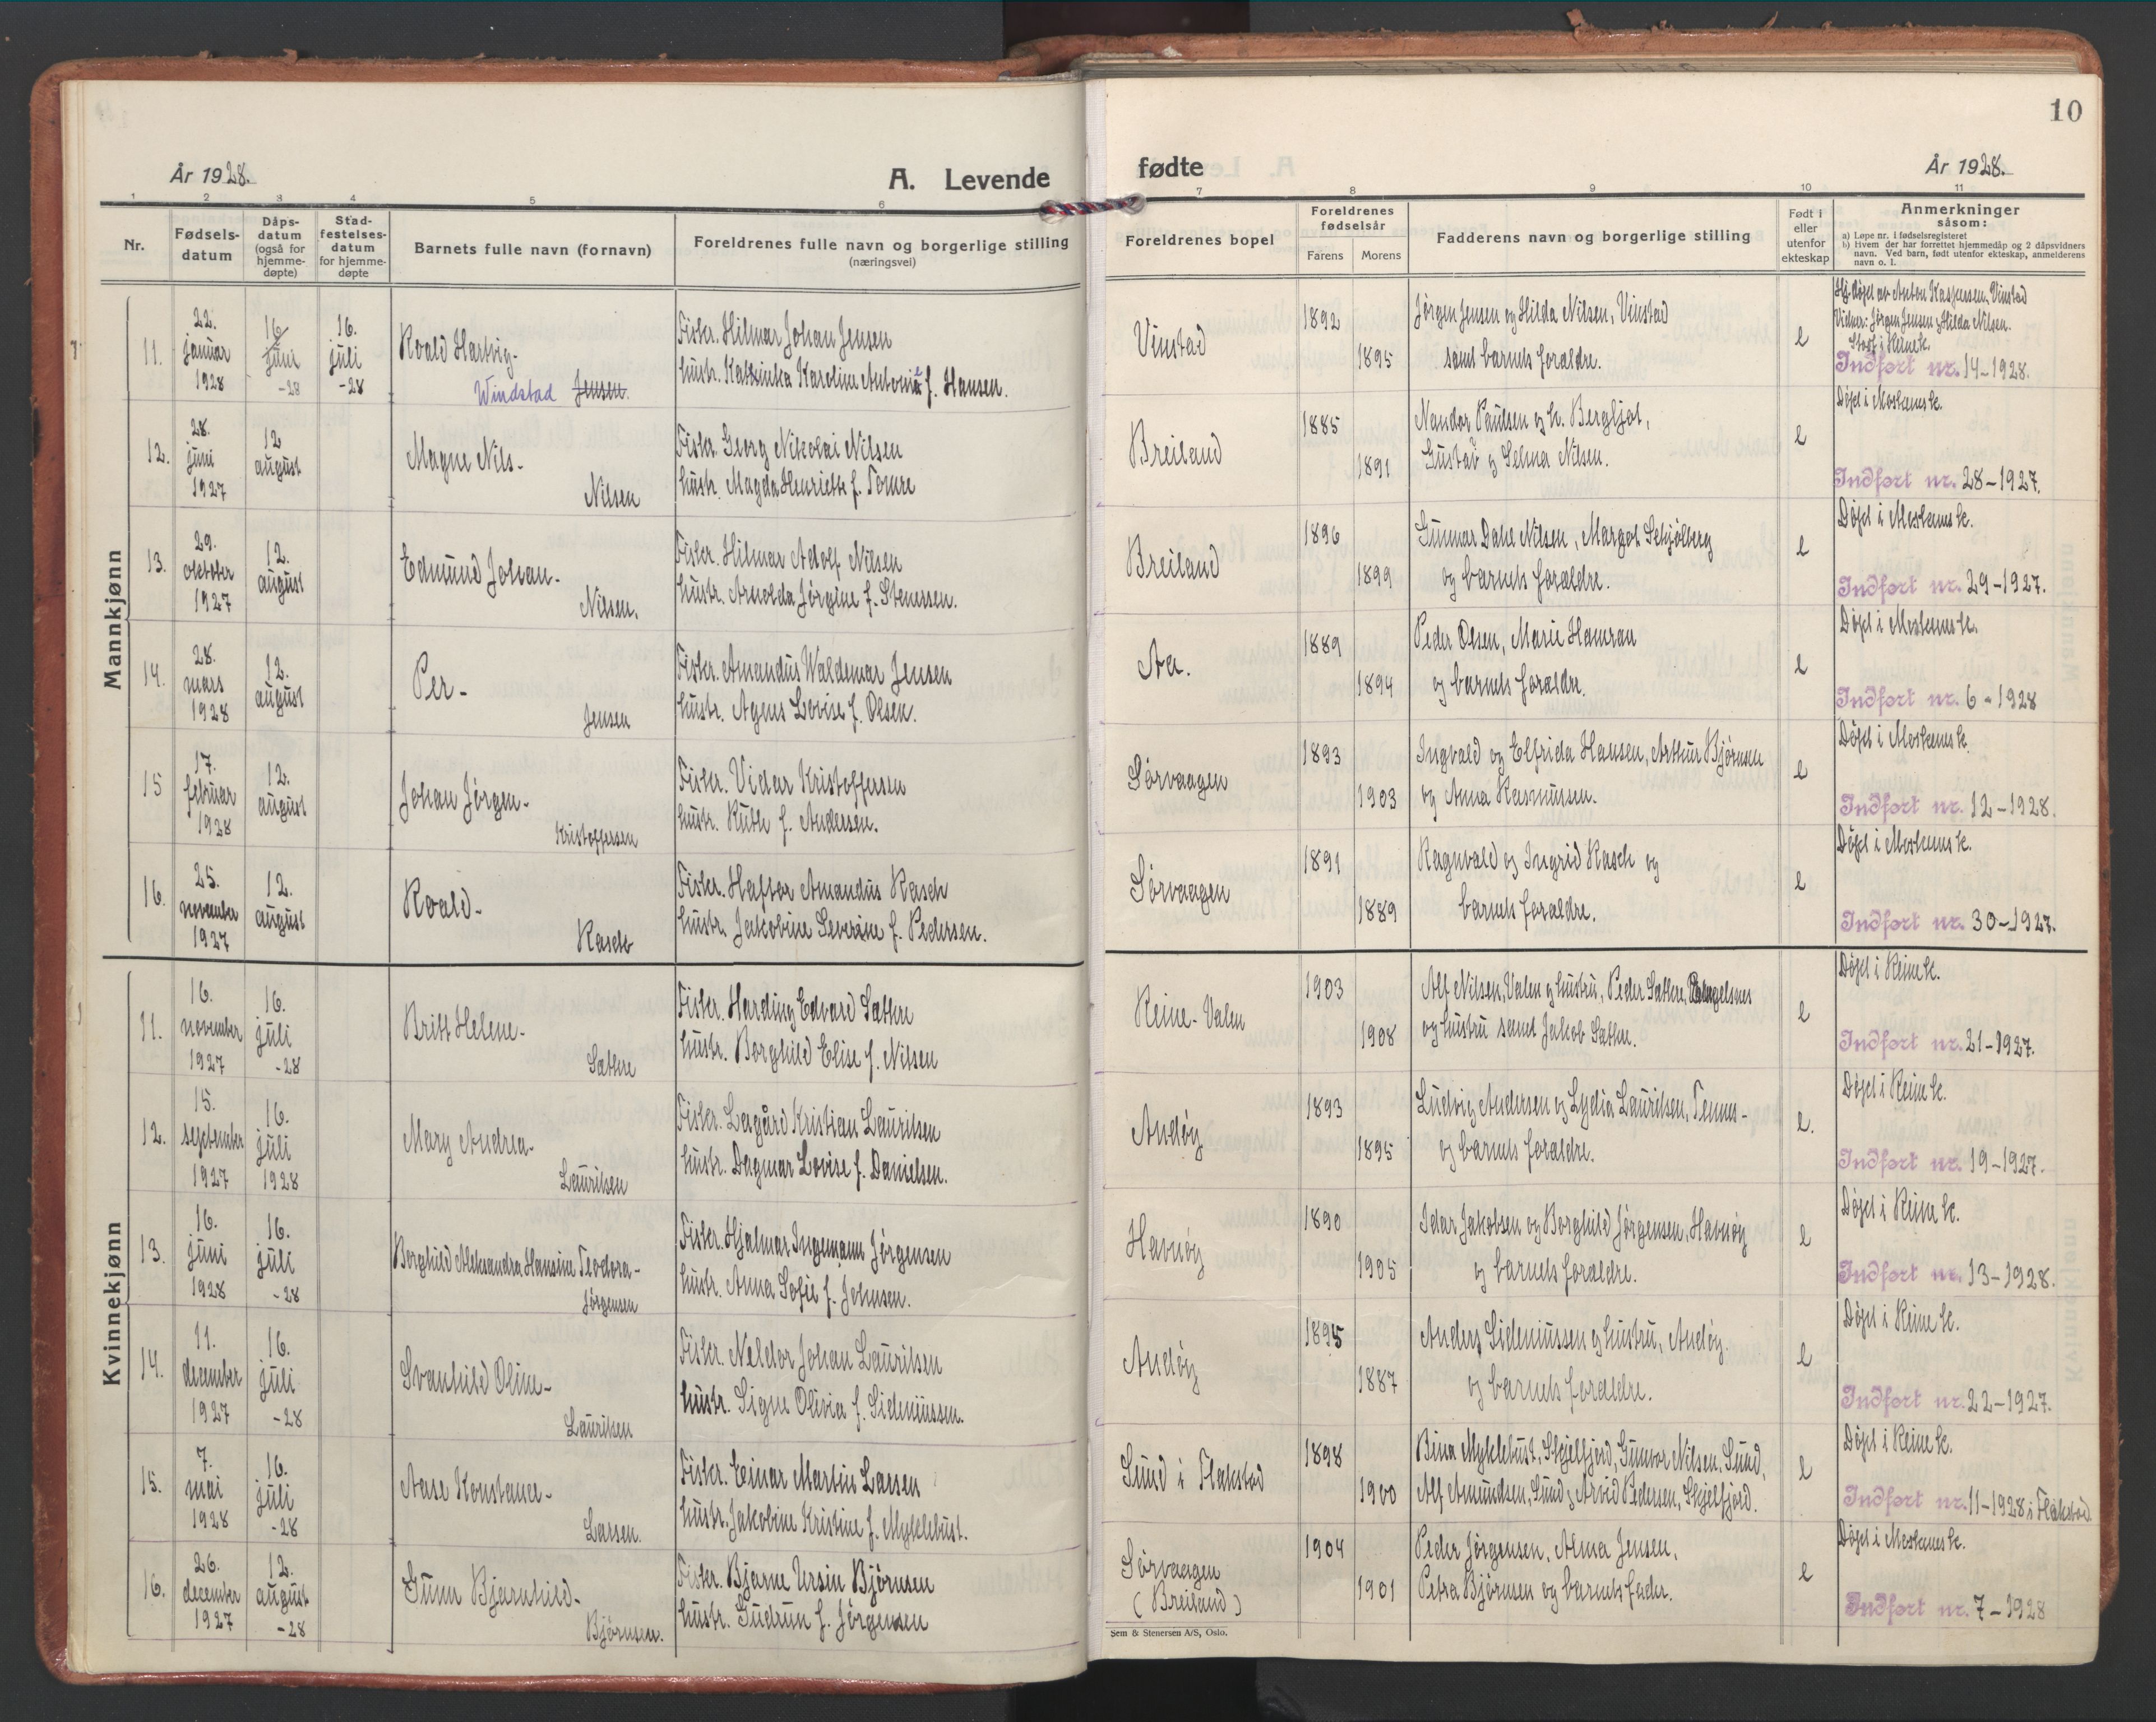 10
År 1928.
A. Levende
fødte
År 1928.
1 2 3 4 5 6 7 8 9 10 11
Nr.
Fødsels-
datum
Dåps-
datum
(også for
hjemme-
døpte)
Stad-
festelses-
datum
for hjemme-
døpte
Barnets fulle navn (fornavn)
Foreldrenes fulle navn og borgerlige stilling
(næringsvei)
Foreldrenes bopel
Foreldrenes
fødselsår
Farens Morens
Fadderens navn og borgerlige stilling
Født i
eller
utenfor
ekteskap
Anmerkninger
såsom:
a) Løpe nr. i fødselsregisteret
b) Hvem der har forrettet hjemmedåp og 2 dåpsvidners
navn. Ved barn, født utenfor ekteskap, anmelderens
navn o. l.
Mannkjønn
11.
22.
januar
1928
16
juni
-28
16.
juli
-28
Roald Hartvig-
Windstad Jensen.
Fisker. Hilmar Johan Jensen
hustr. Katinka Karoline Antonie f. Hansen.
Vinstad
1892
1895
Jørgen Jensen og Hilda Nilsen, Vinstad
samt barnets forældre.
e
Hj. døpt av Anton Kaspersen, Vinstad
Vidner: Jørgen Jensen og Hilda Nilsen.
Stadf. i Reine k.
Indført nr. 14-1928.
12.
28.
juni
1927
12
august
Magne Nils-
Nilsen
Fisker. Georg Nikolai Nilsen
hustr. Magda Henriette f. Tomre
Breiland
1885
1891
Nandor Paulsen og h. Bergljot,
Gustav og Selma Nilsen.
e
Døpt i Moskenes k.
Indført nr. 28-1927.
13.
29.
oktober
1927
12.
august
Edmund Johan-
Nilsen.
Fisker. Hilmar Adolf Nilsen
hustr. Arnolda Jørgine f. Stenssen.
Breiland
1896
1899
Gunnar Dahl Nilsen, Margot Schjølberg
og barnets forældre.
e
Døpt i Moskenes k.
Indført nr. 29-1927.
14.
28.
mars
1928
12.
august
Per-
Jensen
Fisker. Amandus Waldemar Jensen
hustr. Agnes Lovise f. Olsen.
Aa.
1889
1894
Peder Olsen, Marie Hamran
og barnets forældre.
e
Døpt i Moskenes k.
Indført nr. 6-1928
15
17.
februar
1928
12.
august
Johan Jørgen-
Kristoffersen
Fisker. Vidar Kristoffersen
hustr. Ruth f. Andersen.
Sørvaagen
1893
1903
Ingvald og Elfrida Hansen, Arthur Bjørnsen
og Anna Rasmussen.
e
Døpt i Moskenes k.
Indført nr. 12-1928.
16.
25.
november
1927
12.
august
Roald-
Rasch
Fisker. Haftor Amandus Rasch
hustr. Jakobine Severine f. Pedersen.
Sørvaagen
1891
1889
Ragnvald og Ingrid Rasch og
barnets forældre.
e
Døpt i Moskenes k.
Indført nr. 30-1927.
Kvinnekjønn
11.
16.
november
1927
16.
juli
-28
Britt Helene-
Sæthre
Fisker. Harding Edvard Sæthre
hustr. Borghild Elise f. Nilsen
Reine-Valen
1903
1908
Alf Nilsen, Valen og hustru, Peder Sæthre,
og hustru samt Jakob Sæthre.
e
Døpt i Reine k.
Indført nr. 21-1927.
12.
15.
september
1927
16.
juli
1928
Mary Andrea-
Lauritsen
Fisker. Lagård Kristian Lauritsen
hustr. Dagmar Lovise f. Danielsen.
Andøy
1893
1895
Ludvig Andersen og Lydia Lauritsen, Tennes-
og barnets forældre.
e.
Døpt i Reine k.
Indført nr. 19-1927.
13.
16.
juni
1928
16.
juli
-28
Borghild Aleksandra Hansine Teodora-
Jørgensen
Fisker. Hjalmar Ingemann Jørgensen
hustr. Anna Sofie f. Johnsen.
Havnøy
1890
1905
Idar Jakobsen og Borghild Jørgensen, Havnøy
og barnets forældre.
e
Døpt i Reine k.
Indført nr. 13-1928.
14.
11.
december
1927
16.
juli
-28
Svanhild Oline-
Lauritsen
Fisker. Neldor Johan Lauritsen
hustr. Signe Olivia f. Sideniussen.
Andøy
1895
1887
Anders Sideniussen og hustru, Andøy.
og barnets forældre.
e
Døpt i Reine k.
Indført nr. 22-1927.
15.
7.
mai
1928
16.
juli
-28
Aase Konstance-
Larsen.
Fisker. Einar Martin Larsen
hustr. Jakobine Kristine f. Myklebust.
Sund i Flakstad
1898
1900
Bina Myklebust, Skjelfjord, Gunvor Nilsen, Sund,
Alf Amundsen, Sund og Arvid Pedersen, Skjelfjord.
e
Døpt i Reine k.
Indført nr. 11-1928 i Flakstad
16.
26.
december
1927
12.
august
-28
Gunn Bjarnhild-
Bjørnsen.
Fisker. Bjarne Ursin Bjørnsen
hustr. Gudrun f. Jørgensen
Sørvaagen
(Breiland)
1904
1901
Peder Jørgensen, Alma Jensen,
Petra Bjørnsen og barnets fader.
e
Døpt i Moskenes k.
Indført nr. 7-1928
Sem & Stenersen A/S, Oslo.